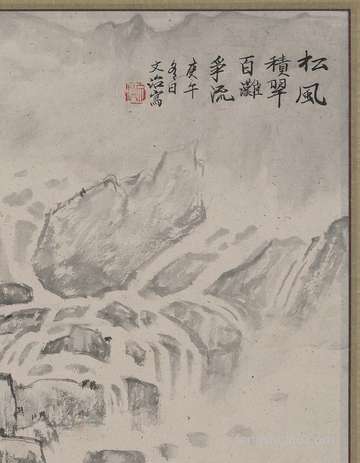 松風
積翠
百灘
爭流
庚午
冬日
文治寫